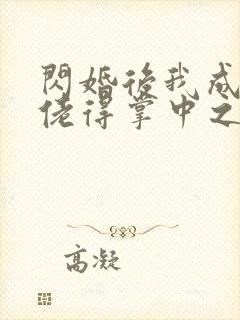 閃婚後我成
佬得掌中之
高凝